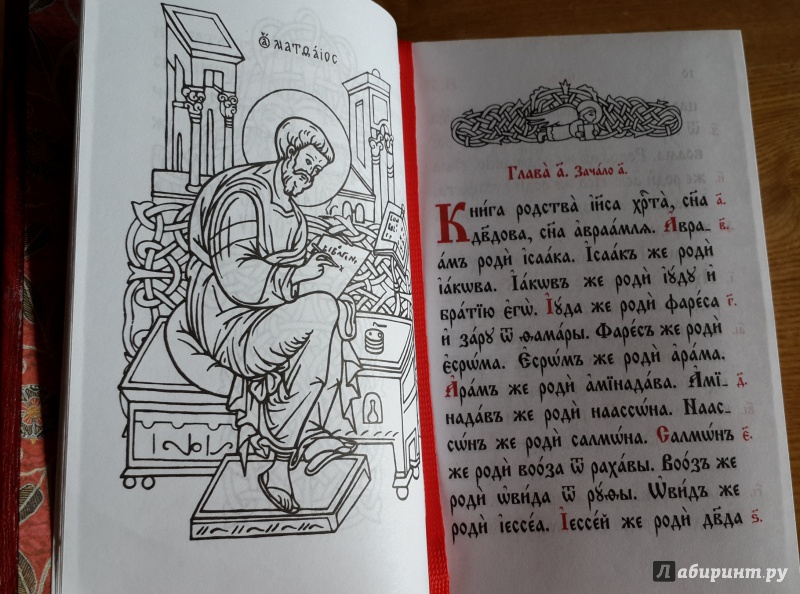 МАТѲАІОС
Глава̀ а҃. Зача́ло а҃.
Кни́га родства̀ і҆и҃са хрⷭ҇та̀, сн҃а а҃.
дв҃дова, сн҃а а҆враа́млѧ. А҆вра- в҃.
а́мъ родѝ і҆саа́ка. І҆саа́къ же родѝ
і҆а́кѡва. І҆а́кѡвъ же родѝ і҆ꙋ́дꙋ и҆
бра́тїю є҆гѡ̀. І҆ꙋ́да же родѝ фаре́са г҃.
и҆ за́рꙋ ѿ ѳама́ры. Фаре́съ же родѝ
є҆срѡ́ма. Є҆срѡ́мъ же родѝ а҆ра́ма.
А҆ра́мъ же родѝ а҆мїнада́ва. А҆мї- д҃.
нада́въ же родѝ наассѡ́на. Наас-
сѡ́нъ же родѝ салмѡ́на. Салмѡ́нъ є҃.
же родѝ воо́за ѿ раха́вы. Воо́зъ же
родѝ ѡ҆ви́да ѿ рꙋ́ѳы. Ѡ҆ви́дъ же
родѝ і҆ессе́а. І҆ессе́й же родѝ дв҃да ѕ҃.
Лабиринт.ру